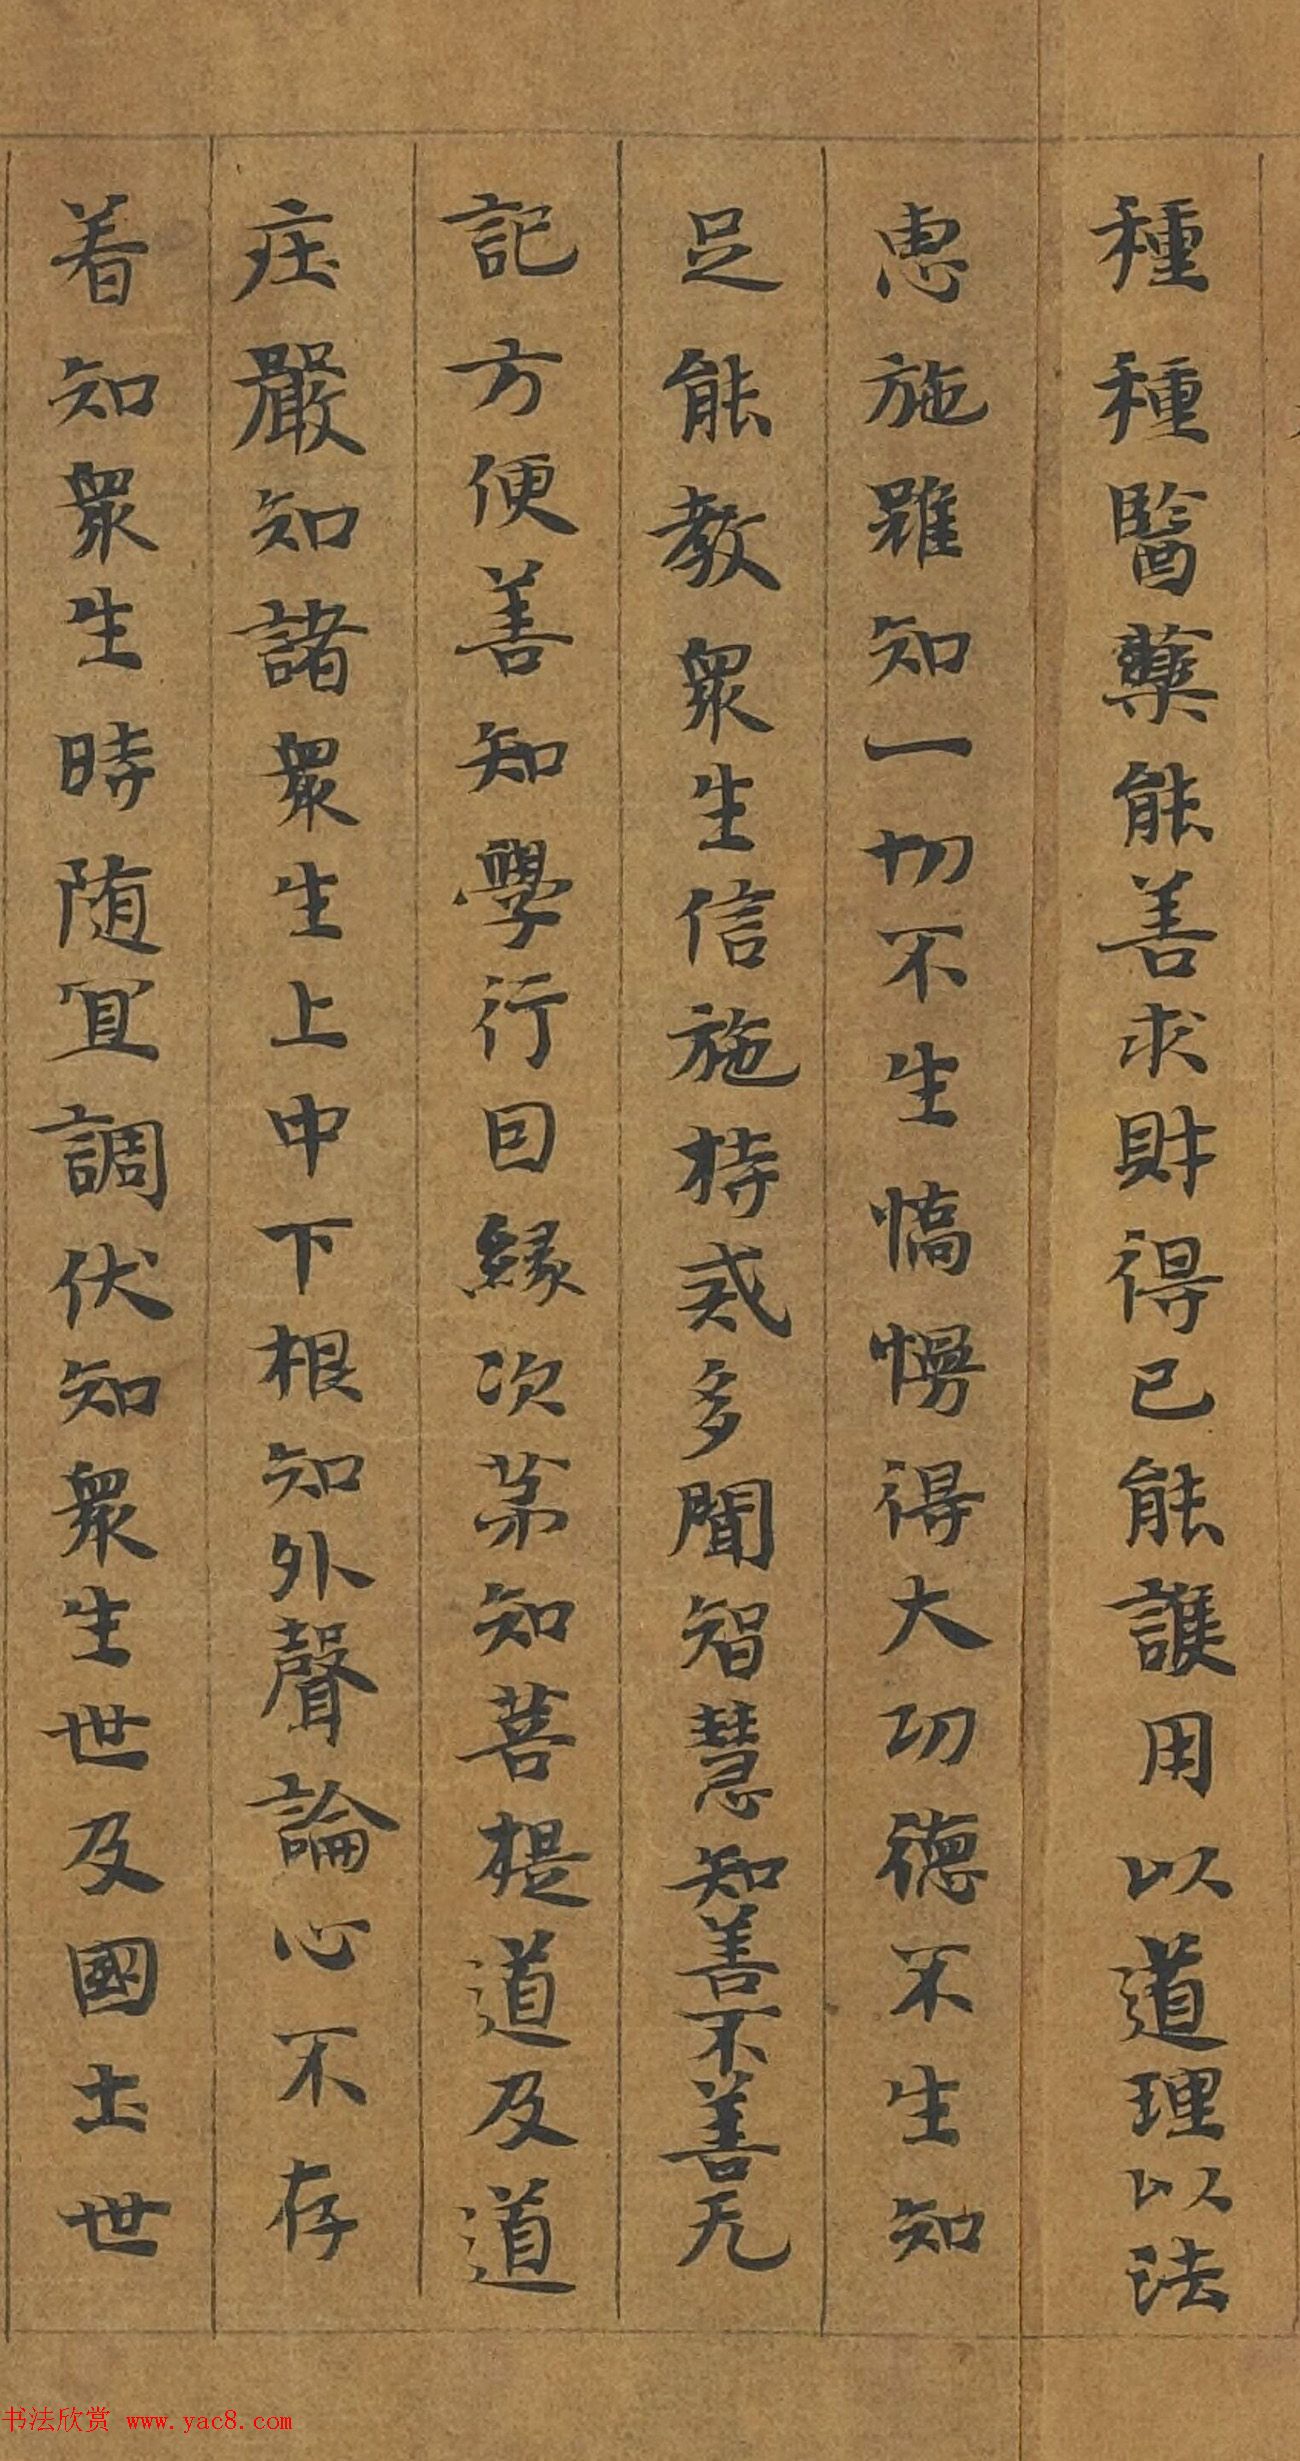 種種醫藥能善求財得已能護用以道理以法
恵施雖知一切不生憍慢得大功德不生知
足能教衆生信施持戒多聞智慧知善不善无
記方便善知學行因緣次第知菩提道及道
庄嚴知諸衆生上中下根知外聲論心不存
着知衆生時随宜調伏知衆生世及國土世
书法欣赏 www.yac8.com